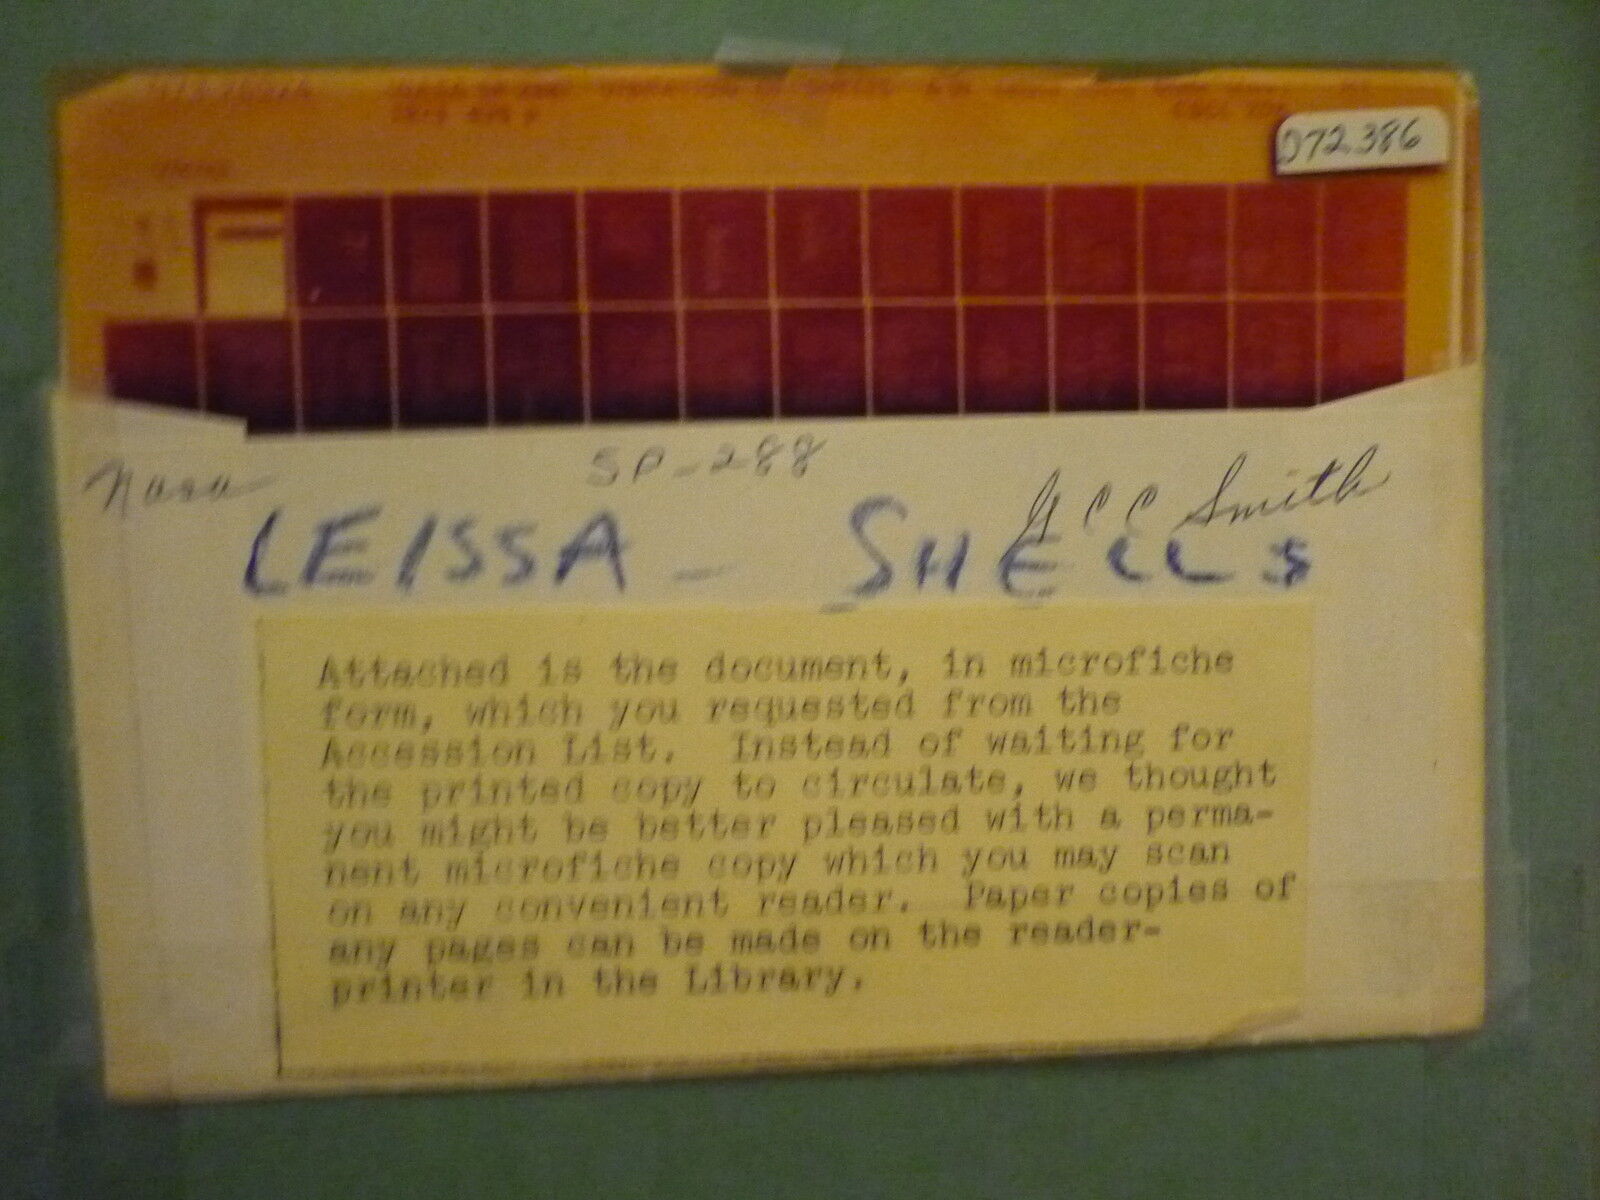 D72386
Nasa
SP-288
G C C Smith
LEISSA - SHELLS
Attached is the document, in microfiche
form, which you requested from the
Accession List. Instead of waiting for
the printed copy to circulate, we thought
you might be better pleased with a perma-
nent microfiche copy which you may scan
on any convenient reader. Paper copies of
any pages can be made on the reader-
printer in the Library.